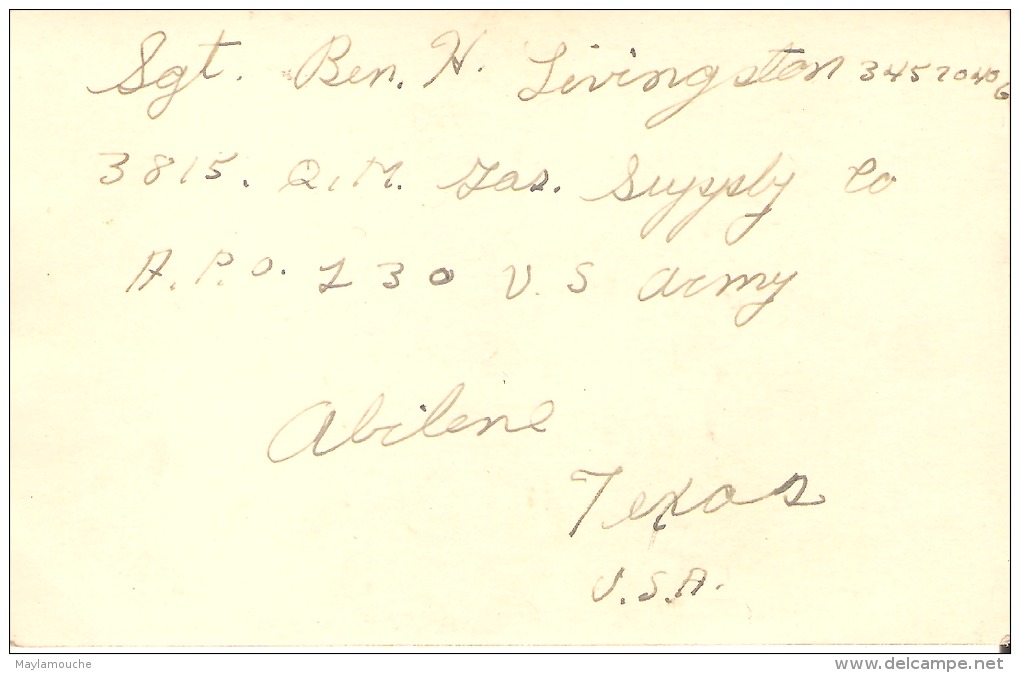 Sgt. Ben. H. Livingston 34520406
3815. Q.M. Gas. Supply Co
A.P.O. 230 U.S Army
Abilene
Texas
U.S.A.
Maylamouche
www.delcampe.net